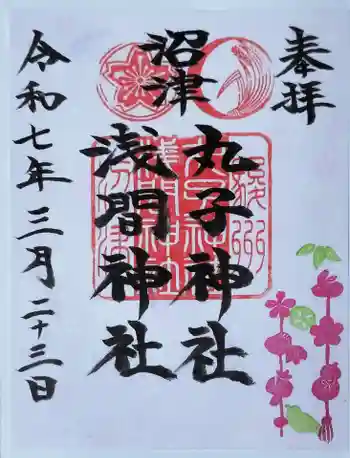 奉拝
沼津
丸子神社
浅間神社
令和七年三月二十三日